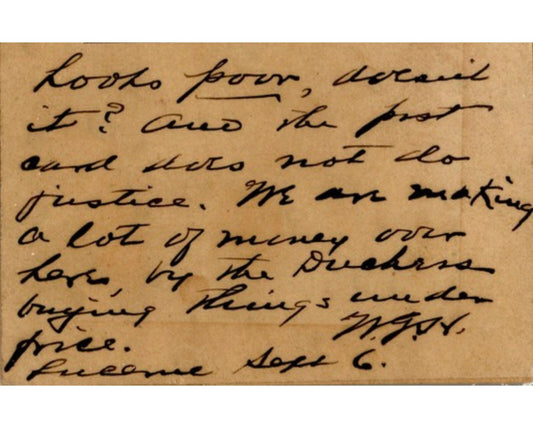 Looks poor, doesn't
it? And the post
card does not do
justice. We are making
a lot of money over
here, by the Duchess
buying things under
price. W.G.H.
Lucerne Sept 6.